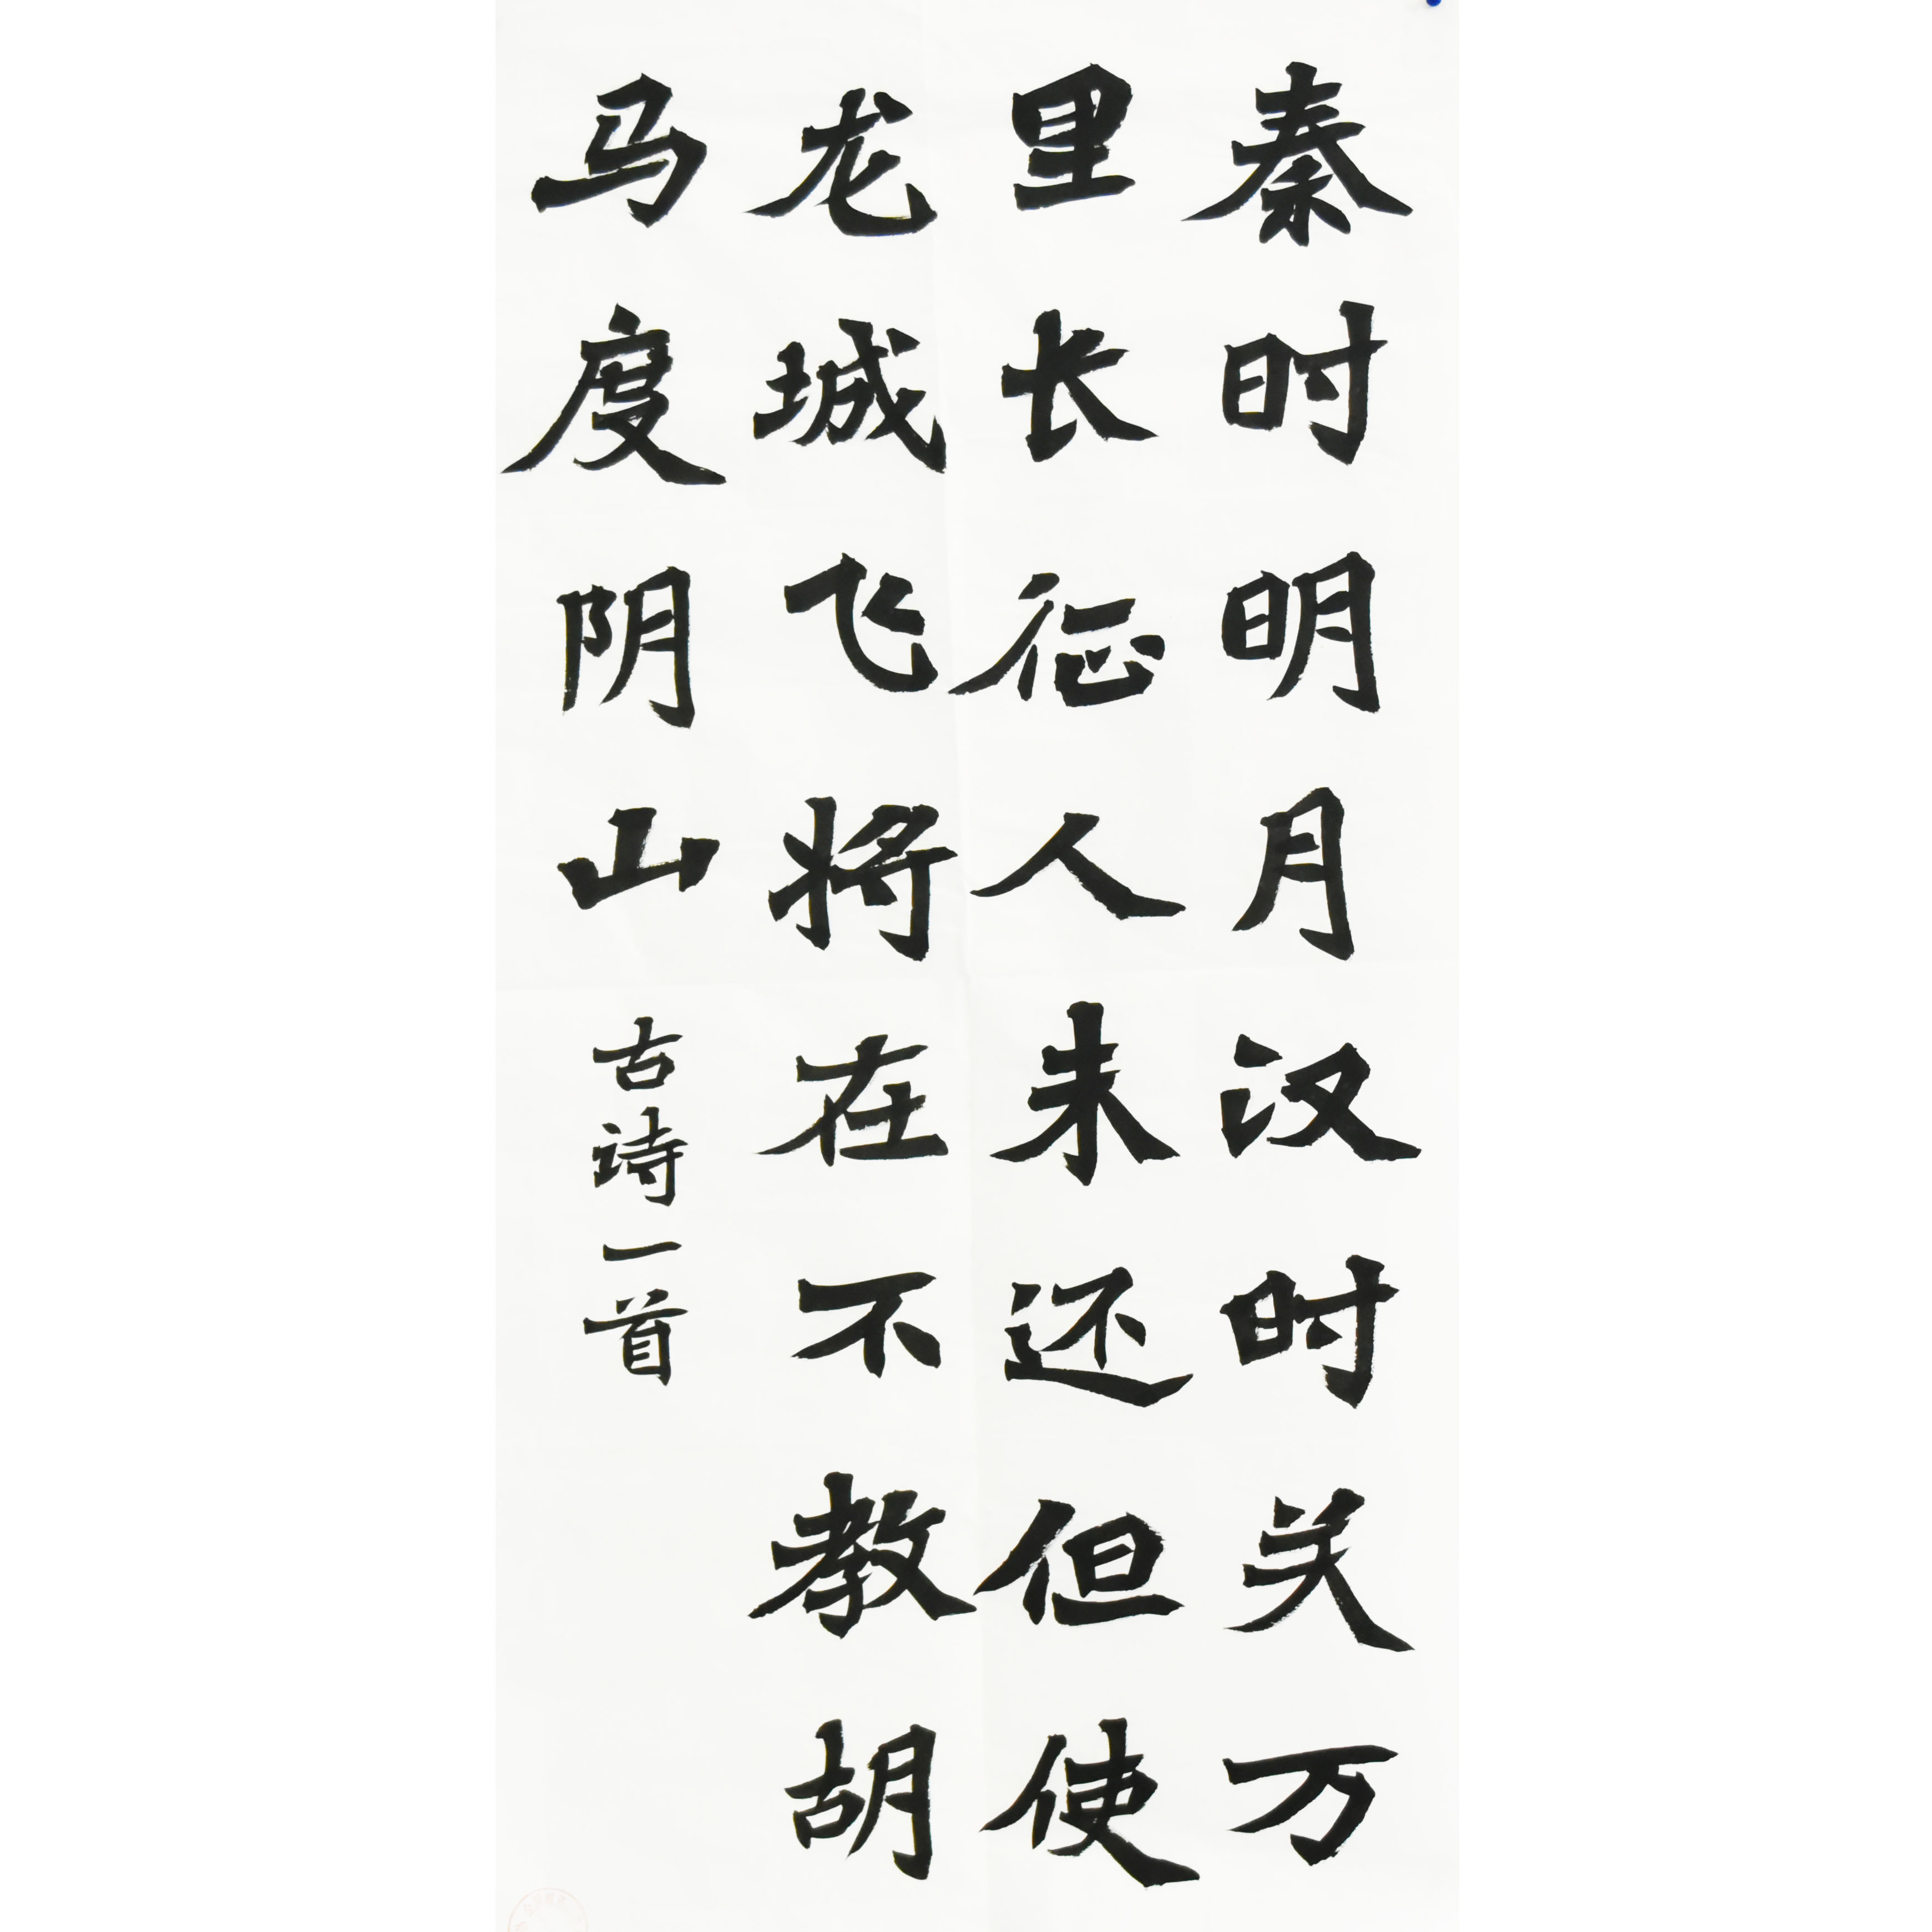 秦时明月汉时关万
里长征人未还但使
龙城飞将在不教胡
马度阴山
古诗一首